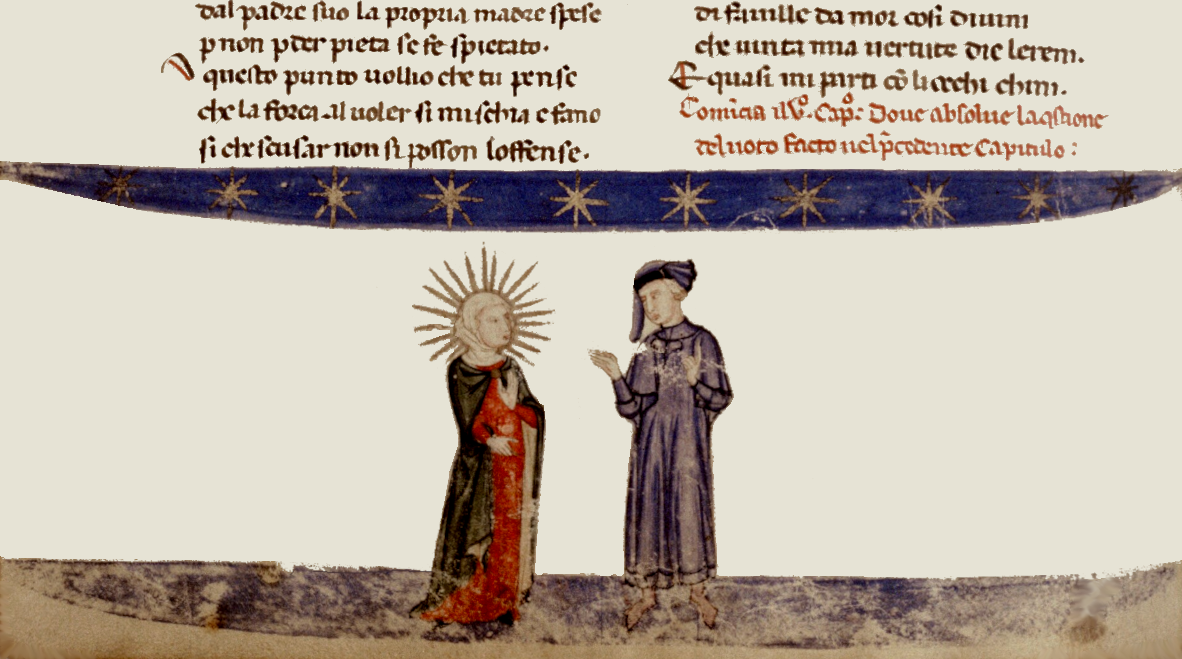 dal padre suo la propria madre spese
p non pder pieta se fe spietato.
A questo punto uollio che tu pense
che la forza al uoler si mischia e fano
si che scusar non si posson loffense.
di fauille da mor cosi diuini
che uinta mia uertute die lereni.
E quasi mi pirti cō li occhi chini.
Comīcia il Vº. Capº: Doue absolue la qstione
del uoto facto nel p̄cedente Capitulo :